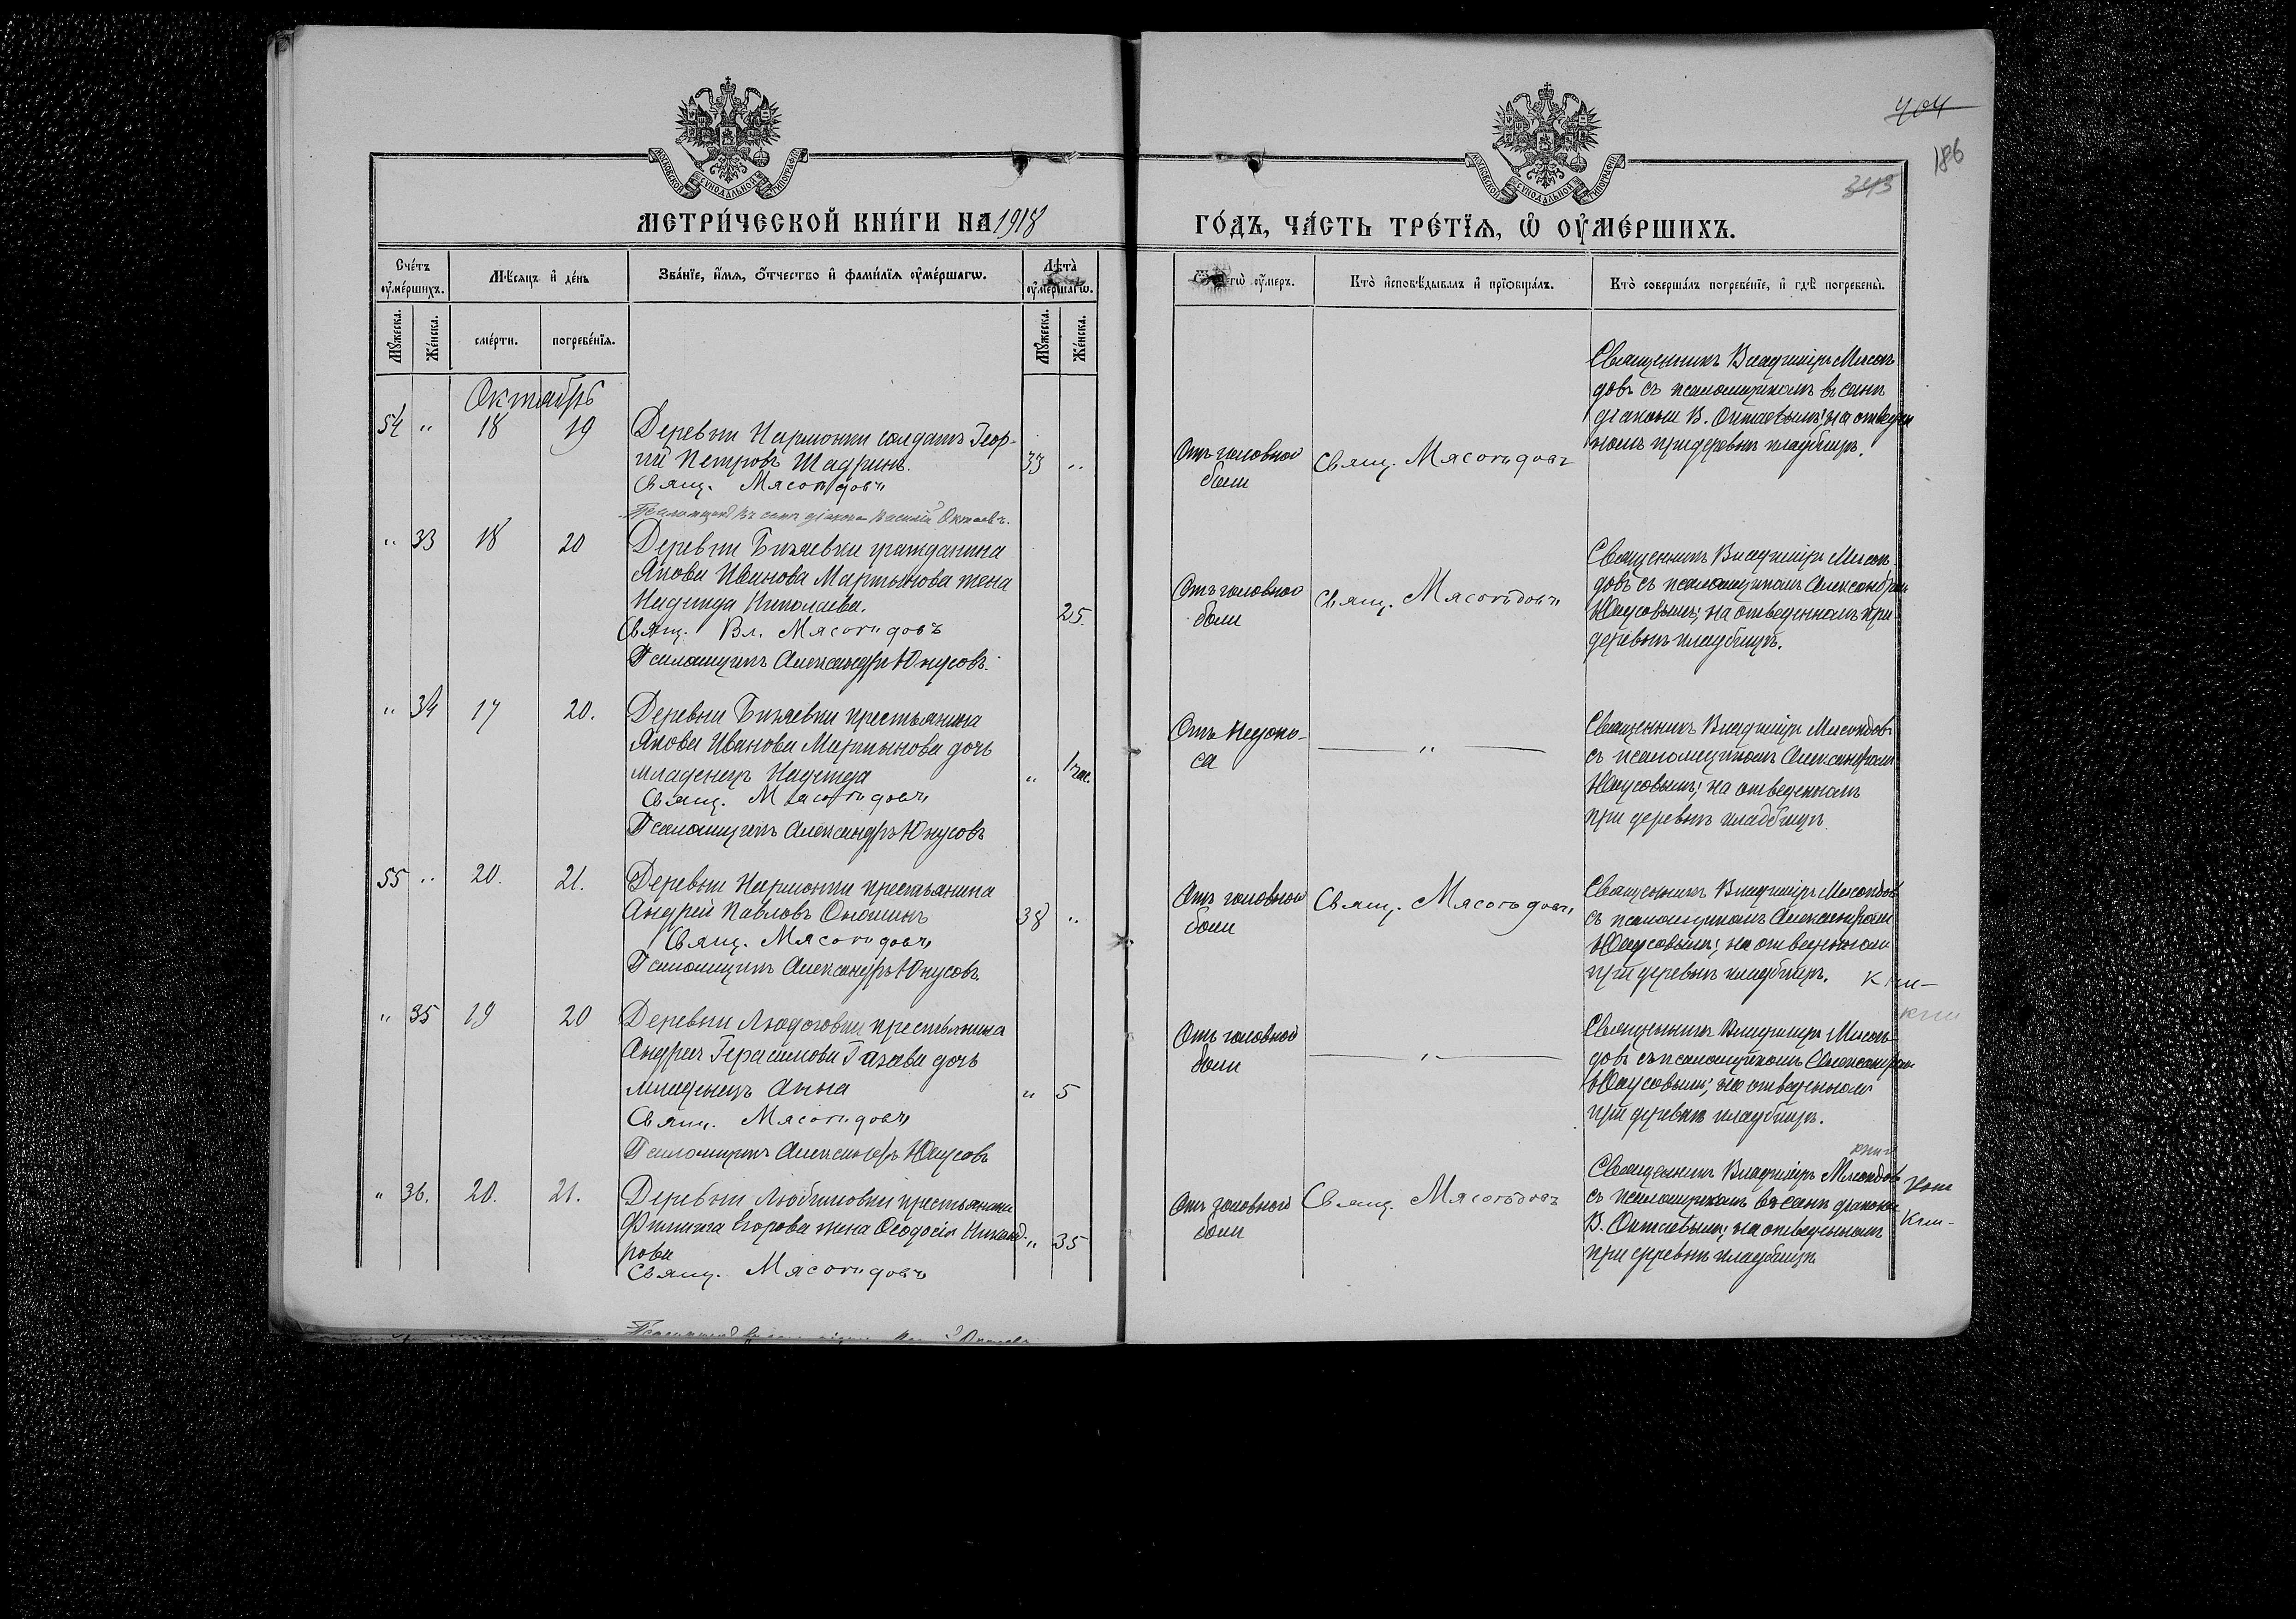 404
186
343
МОСКОВСКОЙ СѴНОДАЛЬНОЙ ТИПОГРАФІИ
МОСКОВСКОЙ СѴНОДАЛЬНОЙ ТИПОГРАФІИ
МЕТРИ́ЧЕСКОЙ КНИ́ГИ НА 1918
ГО́ДЪ, ЧА́СТЬ ТРЕ́ТЇѦ, Ѡ҆ ОУ҆МЕ́РШИХЪ.
Сче́тъ оу҆ме́ршихъ.
Мѣ́сяцъ и҆ де́нь
Зва́нїе, и҆́мя, ѻ҆́тчество и҆ фами́лїя оу҆ме́ршагѡ.
Лѣ́та оу҆ме́ршагѡ.
оу҆́меръ.
Кто̀ и҆сповѣ́дывалъ и҆ прїѻбща́лъ.
Кто̀ соверша́лъ погребе́нїе, и҆ гдѣ̀ погребены̀.
Мꙋ́жеска.
Же́нска.
сме́рти.
погребе́нїя.
Мꙋ́жеска.
Же́нска.
Октябрь
54 " 18 19
Деревни Нармонки солдатъ Геор-
гій Петровъ Шадринъ.
33 "
Свящ. Мясоѣдовъ
Псаломщикъ въ санѣ діакона Василій Октаевъ.
Отъ головной
боли
Свящ. Мясоѣдовъ
Священникъ Владиміръ Мясоѣ-
довъ съ псаломщикомъ въ санѣ
діакона В. Октаевымъ; на отведен
номъ при деревнѣ кладбищѣ.
" 33 18 20
Деревни Бизяевки гражданина
Якова Иванова Мартынова жена
Надежда Николаева.
25.
Свящ. Вл. Мясоѣдовъ
Псаломщикъ Александръ Юнусовъ.
Отъ головной
боли
Свящ. Мясоѣдовъ
Священникъ Владиміръ Мясоѣ-
довъ съ псаломщикомъ Александромъ
Юнусовымъ; на отведенномъ при
деревнѣ кладбищѣ.
" 34 17 20.
Деревни Бизяевки крестьянина
Якова Иванова Мартынова дочь
младенецъ Надежда
" 1 час.
Свящ. Мясоѣдовъ
Псаломщикъ Александръ Юнусовъ
Отъ недоно-
са
"
Священникъ Владиміръ Мясоѣдовъ
съ псаломщикомъ Александромъ
Юнусовымъ; на отведенномъ
при деревнѣ кладбищѣ.
55 " 20. 21.
Деревни Нармонки крестьянина
Андрей Павловъ Оношинъ
38 "
Свящ. Мясоѣдовъ
Псаломщикъ Александръ Юнусовъ.
Отъ головной
боли
Свящ. Мясоѣдовъ
Священникъ Владиміръ Мясоѣдовъ
съ псаломщикомъ Александромъ
Юнусовымъ; на отведенномъ
при деревнѣ кладбищѣ.
" 35 19 20
Деревни крестьянина
Андрея Герасимова дочь
младенецъ Анна
" 5
Свящ. Мясоѣдовъ
Псаломщикъ Александръ Юнусовъ
Отъ головной
боли
"
Священникъ Владиміръ Мясоѣ-
довъ съ псаломщикомъ Александромъ
Юнусовымъ; на отведенномъ
при деревнѣ кладбищѣ.
" 36. 20. 21.
Деревни Любимовки крестьянина
Филиппа Егорова жена Ѳеодосія Никанд-
рова
" 35
Свящ. Мясоѣдовъ
Отъ головной
боли
Свящ. Мясоѣдовъ
Священникъ Владиміръ Мясоѣдовъ
съ псаломщикомъ въ санѣ діакона
В. Октаевымъ; на отведенномъ
при деревнѣ кладбищѣ.